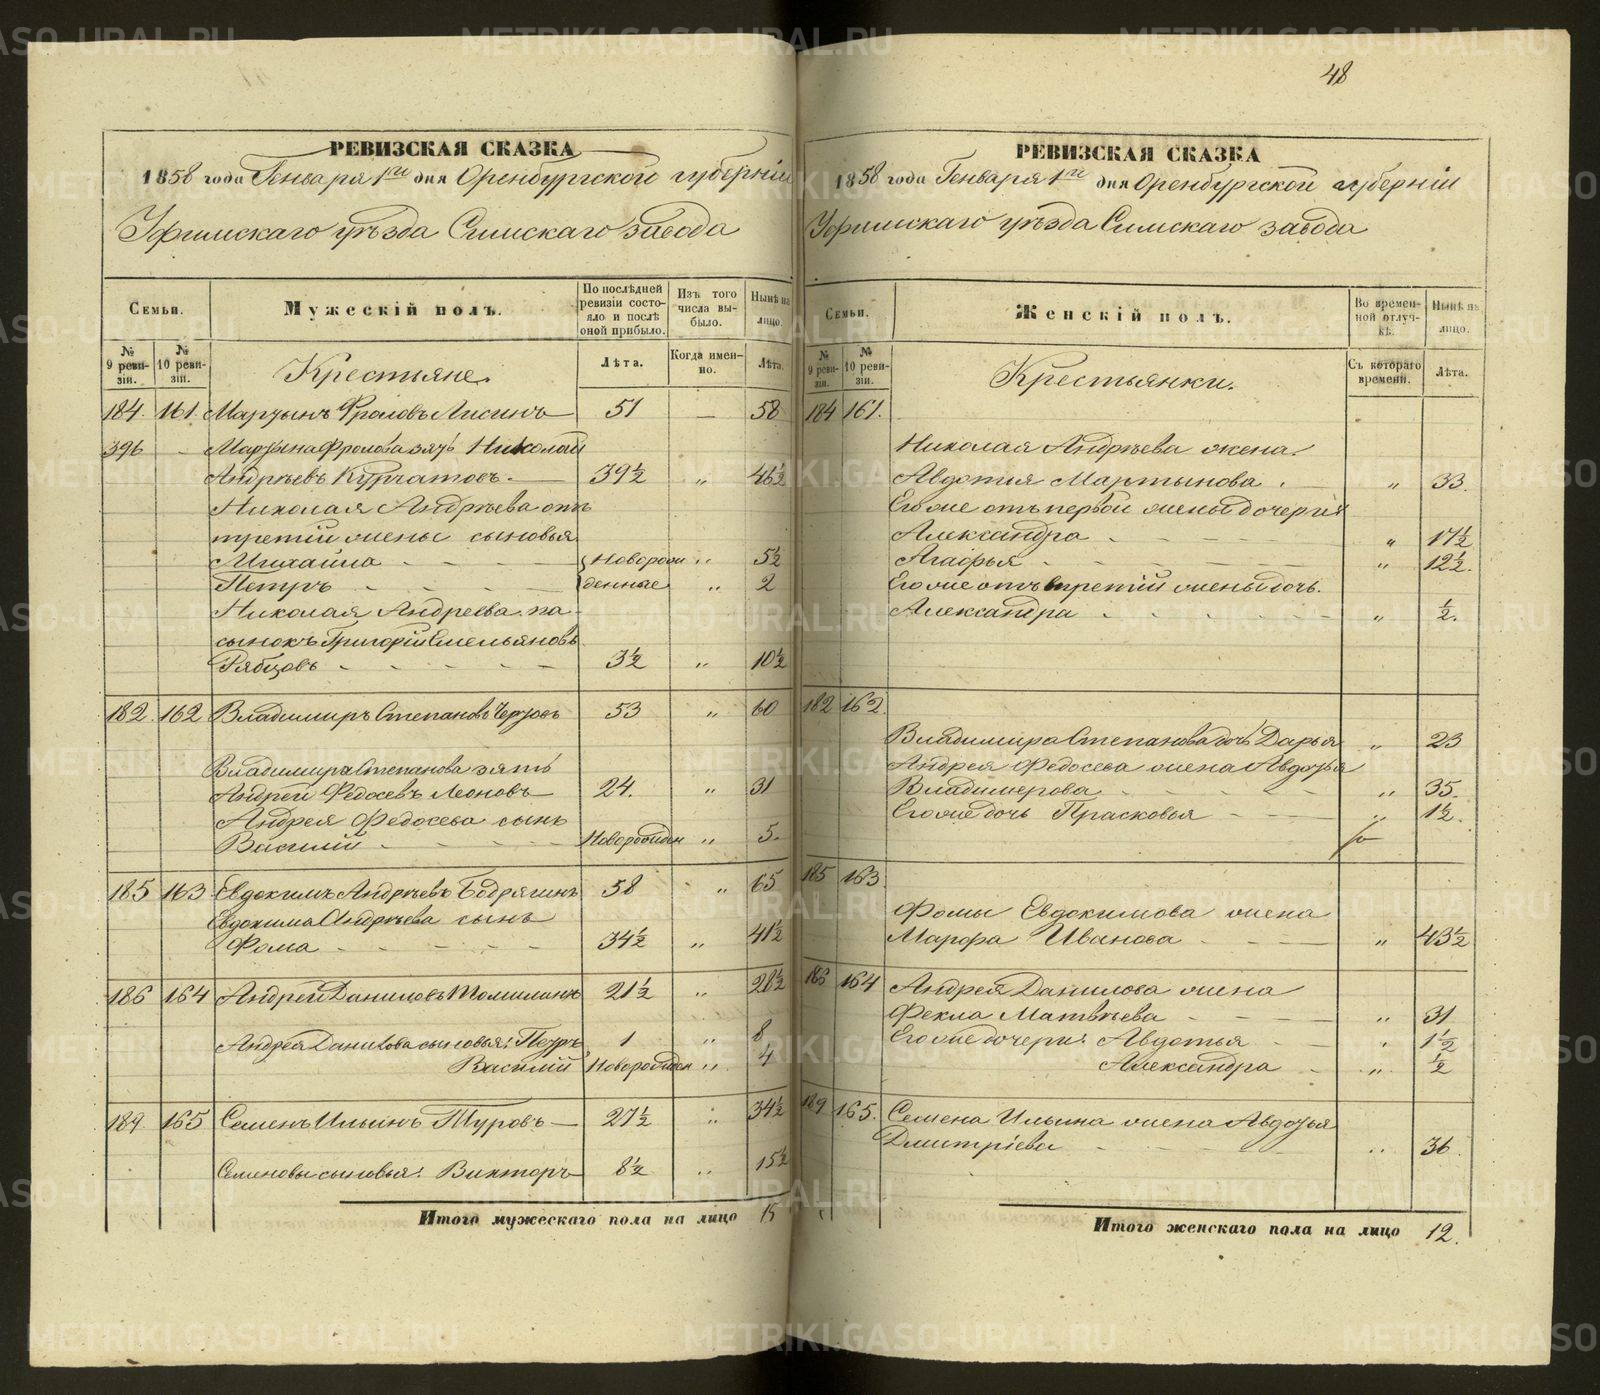 48
РЕВИЗСКАЯ СКАЗКА
1858 года Генваря 1го дня Оренбургской губернiи
Уфимскаго уѣзда Симскаго завода
Семьи.
Мужескiй полъ.
По послѣдней ревизiи состояло и послѣ оной прибыло.
Изъ того числа выбыло.
Нынѣ на лицо.
№ 9 ревизiи.
№ 10 ревизiи.
Крестьяне.
Лѣта.
Когда именно.
Лѣта.
184. 161. Мартынъ Фроловъ Лисинъ 51 — 58
396 - Мартына Фролова зять Николай
Андрѣевъ Курчатовъ. 39½ " 46½
Николая Андрѣева отъ
третiй жены сыновья
Михайла - - - Новорож " 5½
Петръ - - - денные " 2
Николая Андреева па
сынокъ Григорiй Емельяновъ
Рябцовъ - - - - 3½ " 10½
182. 162 Владимиръ Степановъ 53 " 60
Владимира Степанова зять
Андрей Федосѣевъ Леоновъ 24. " 31
Андрея Федосѣева сынъ
Василiй - - - - Новорожден " 5.
185 163 Евдокимъ Андрѣевъ Бодрягинъ 58 " 65
Евдокима Андрѣева сынъ
Фома - - - - 34½ " 41½
186 164 Андрей Даниловъ Томилинъ 21½ " 28½
Андрея Данилова сыновья: Петръ 1 " 8
Василiй Новорожден " 4
189. 165 Семенъ Ильинъ Туровъ 27½ " 34½
Семеновы сыновья: Викторъ 8½ " 15½
Итого мужескаго пола на лицо 15
РЕВИЗСКАЯ СКАЗКА
1858 года Генваря 1го дня Оренбургской губернiи
Уфимскаго уѣзда Симскаго завода
Семьи.
Женскiй полъ.
Во временной отлучкѣ.
Нынѣ на лицо.
№ 9 ревизiи.
№ 10 ревизiи.
Крестьянки.
Съ котораго времени.
Лѣта.
184 161.
Николая Андрѣева жена.
Авдотья Мартынова. " 33.
Его же отъ первой жены дочери
Александра - - - - " 17½
Агафья - - - - " 12½.
Его же отъ третiй жены дочь.
Александра - - - - " ½.
182 162.
Владимира Степанова дочь Дарья " 23
Андрея Федосѣева жена Авдотья
Владимерова - - - - " 35.
Его же дочь Прасковья - - " 1½.
185 163.
Фомы Евдокимова жена
Марфа Иванова - - - " 43½
186 164 Андрея Данилова жена
Фекла Матвѣева - - - " 31
Его же дочери: Авдотья - " 1½
Александра - " ½
189 165. Семена Ильина жена Авдотья
Дмитрiева - - - - " 36.
Итого женскаго пола на лицо 12.
METRIKI.GASO-URAL.RU